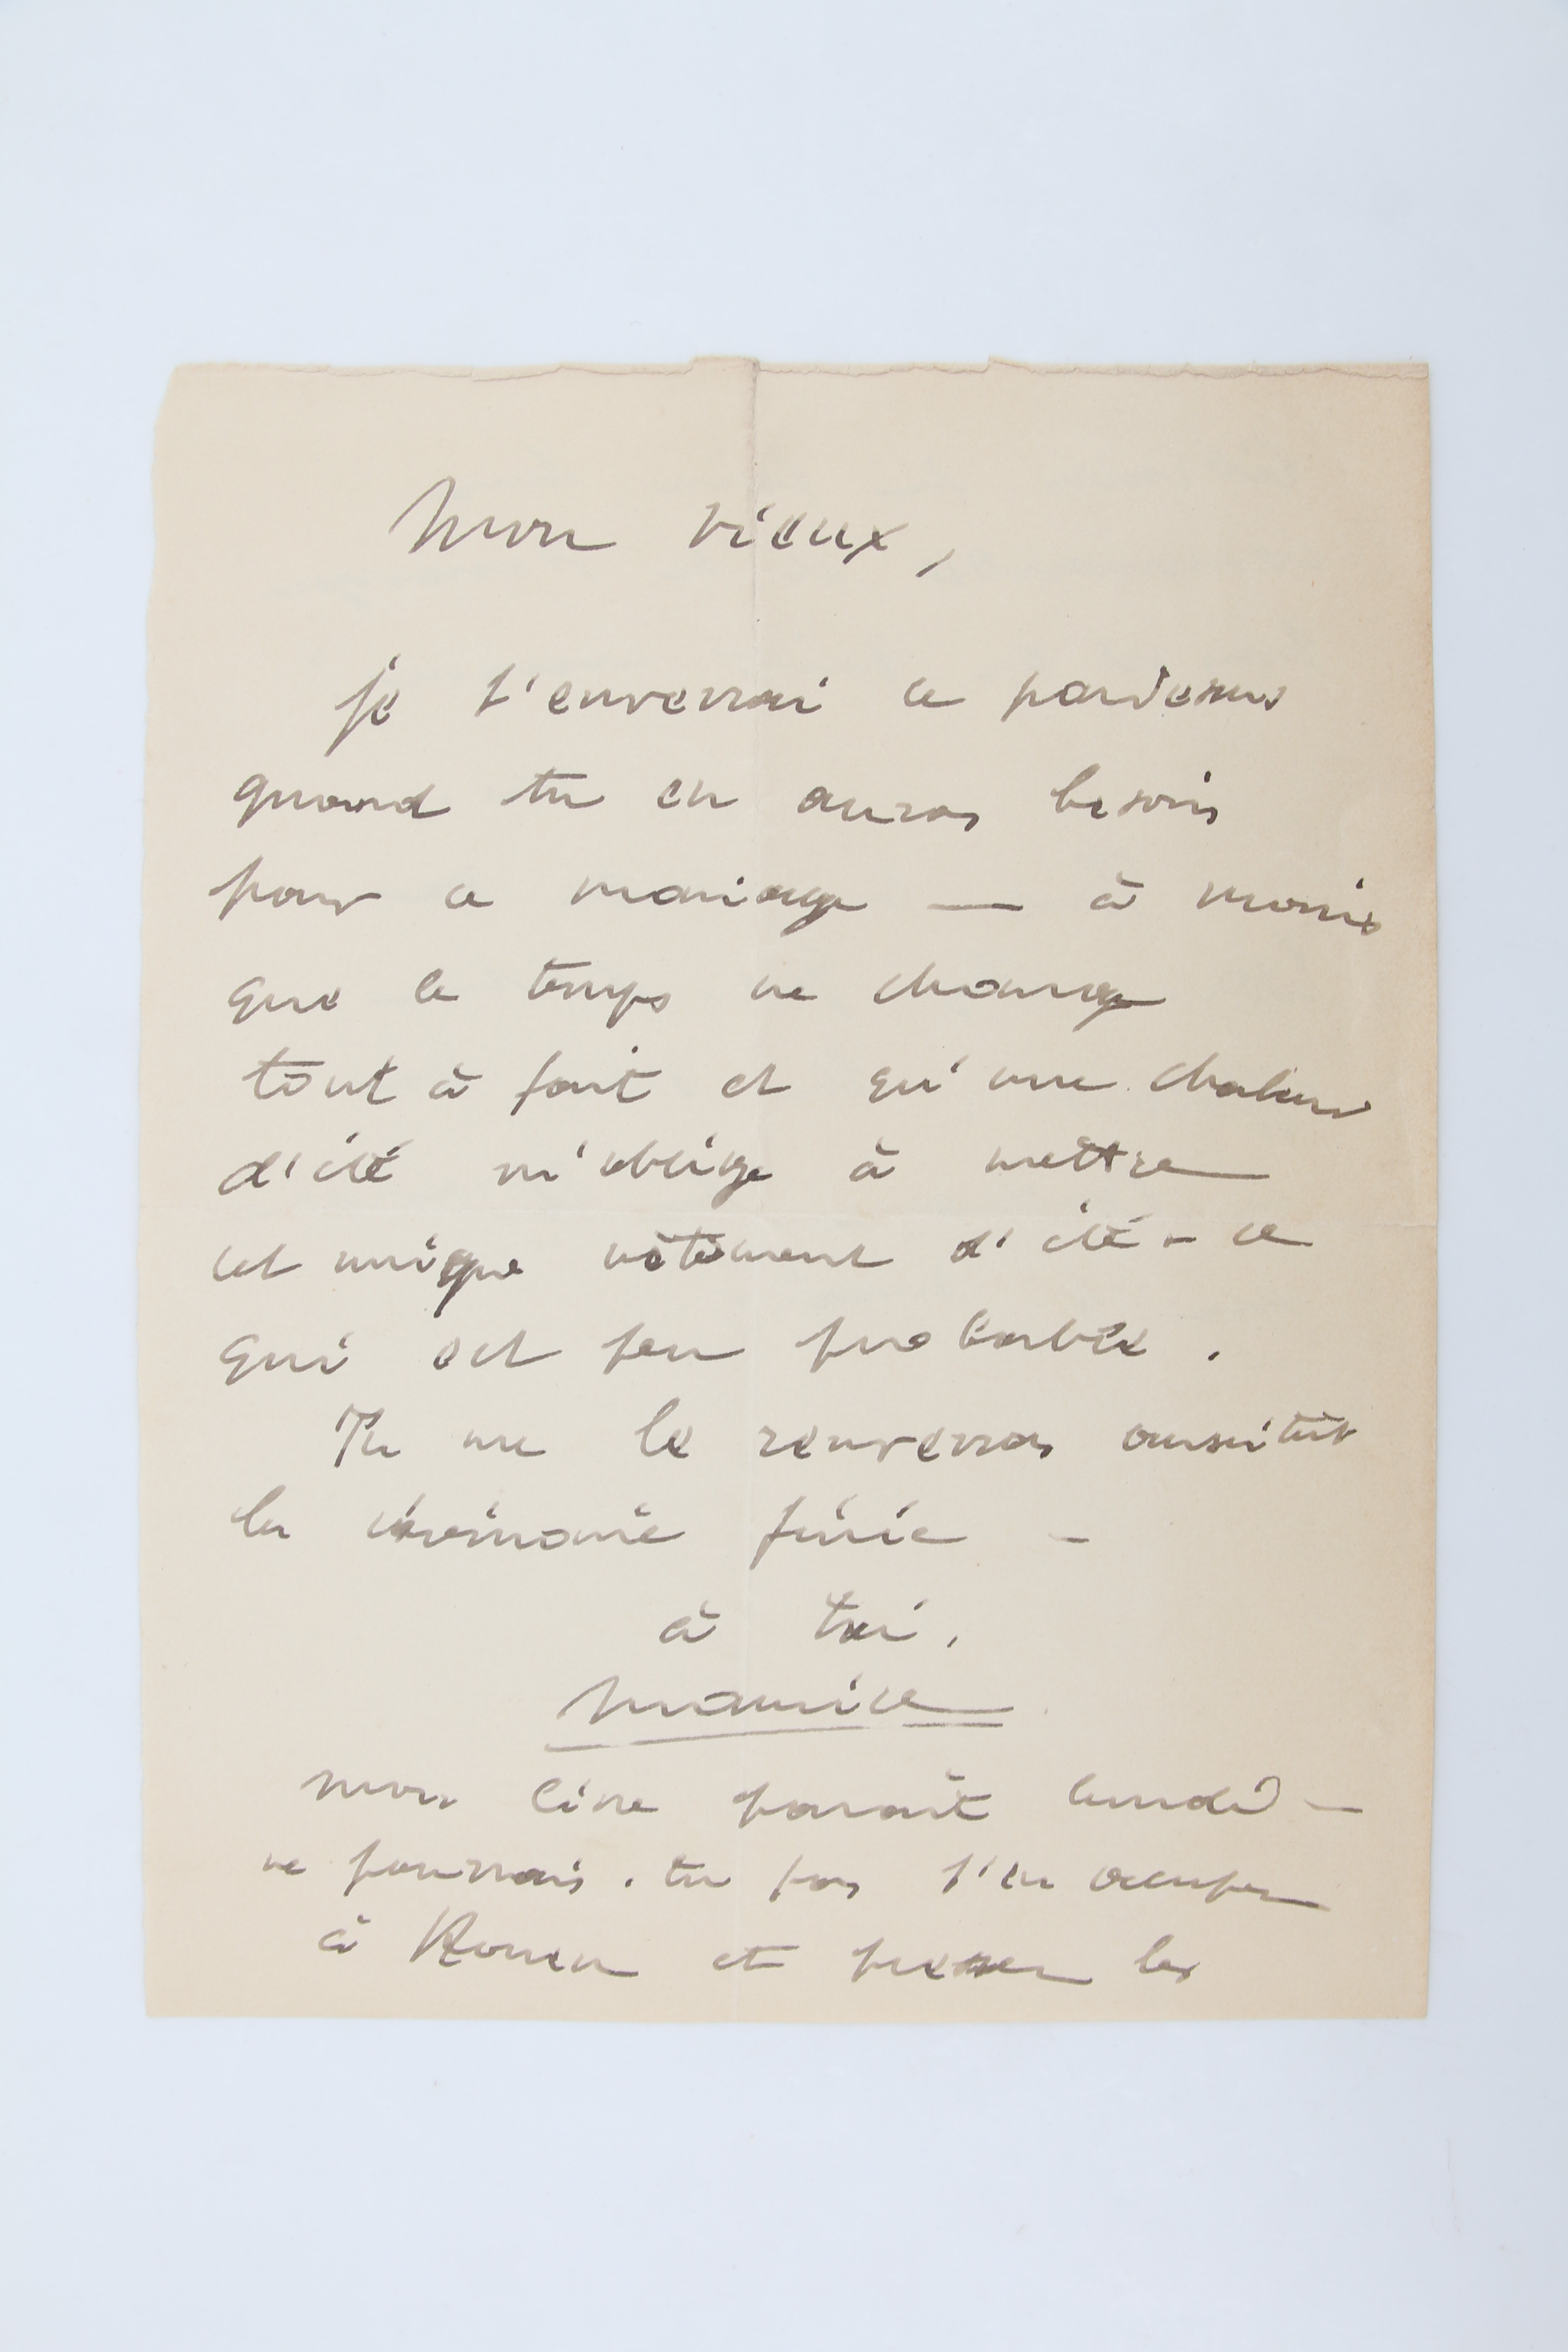 Mon vieux,
je t'enverrai ce pardessus
quand tu en auras besoin
pour ce mariage — à moins
que le temps ne change
tout à fait et qu'une chaleur
d'été m'oblige à mettre
cet unique vêtement d'été - ce
qui est peu probable.
Tu me le renverras aussitôt
la cérémonie finie -
à toi,
Maurice
mon livre paraît lundi -
ne pourrais-tu pas t'en occuper
à Rouen et presser les